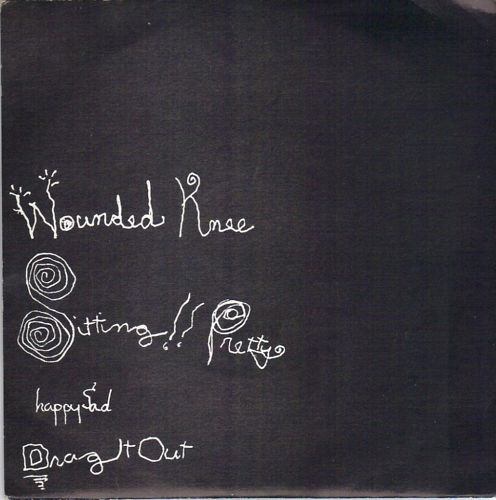 Wounded Knee
Sitting!! Pretty
happy & Sad
Drag It Out